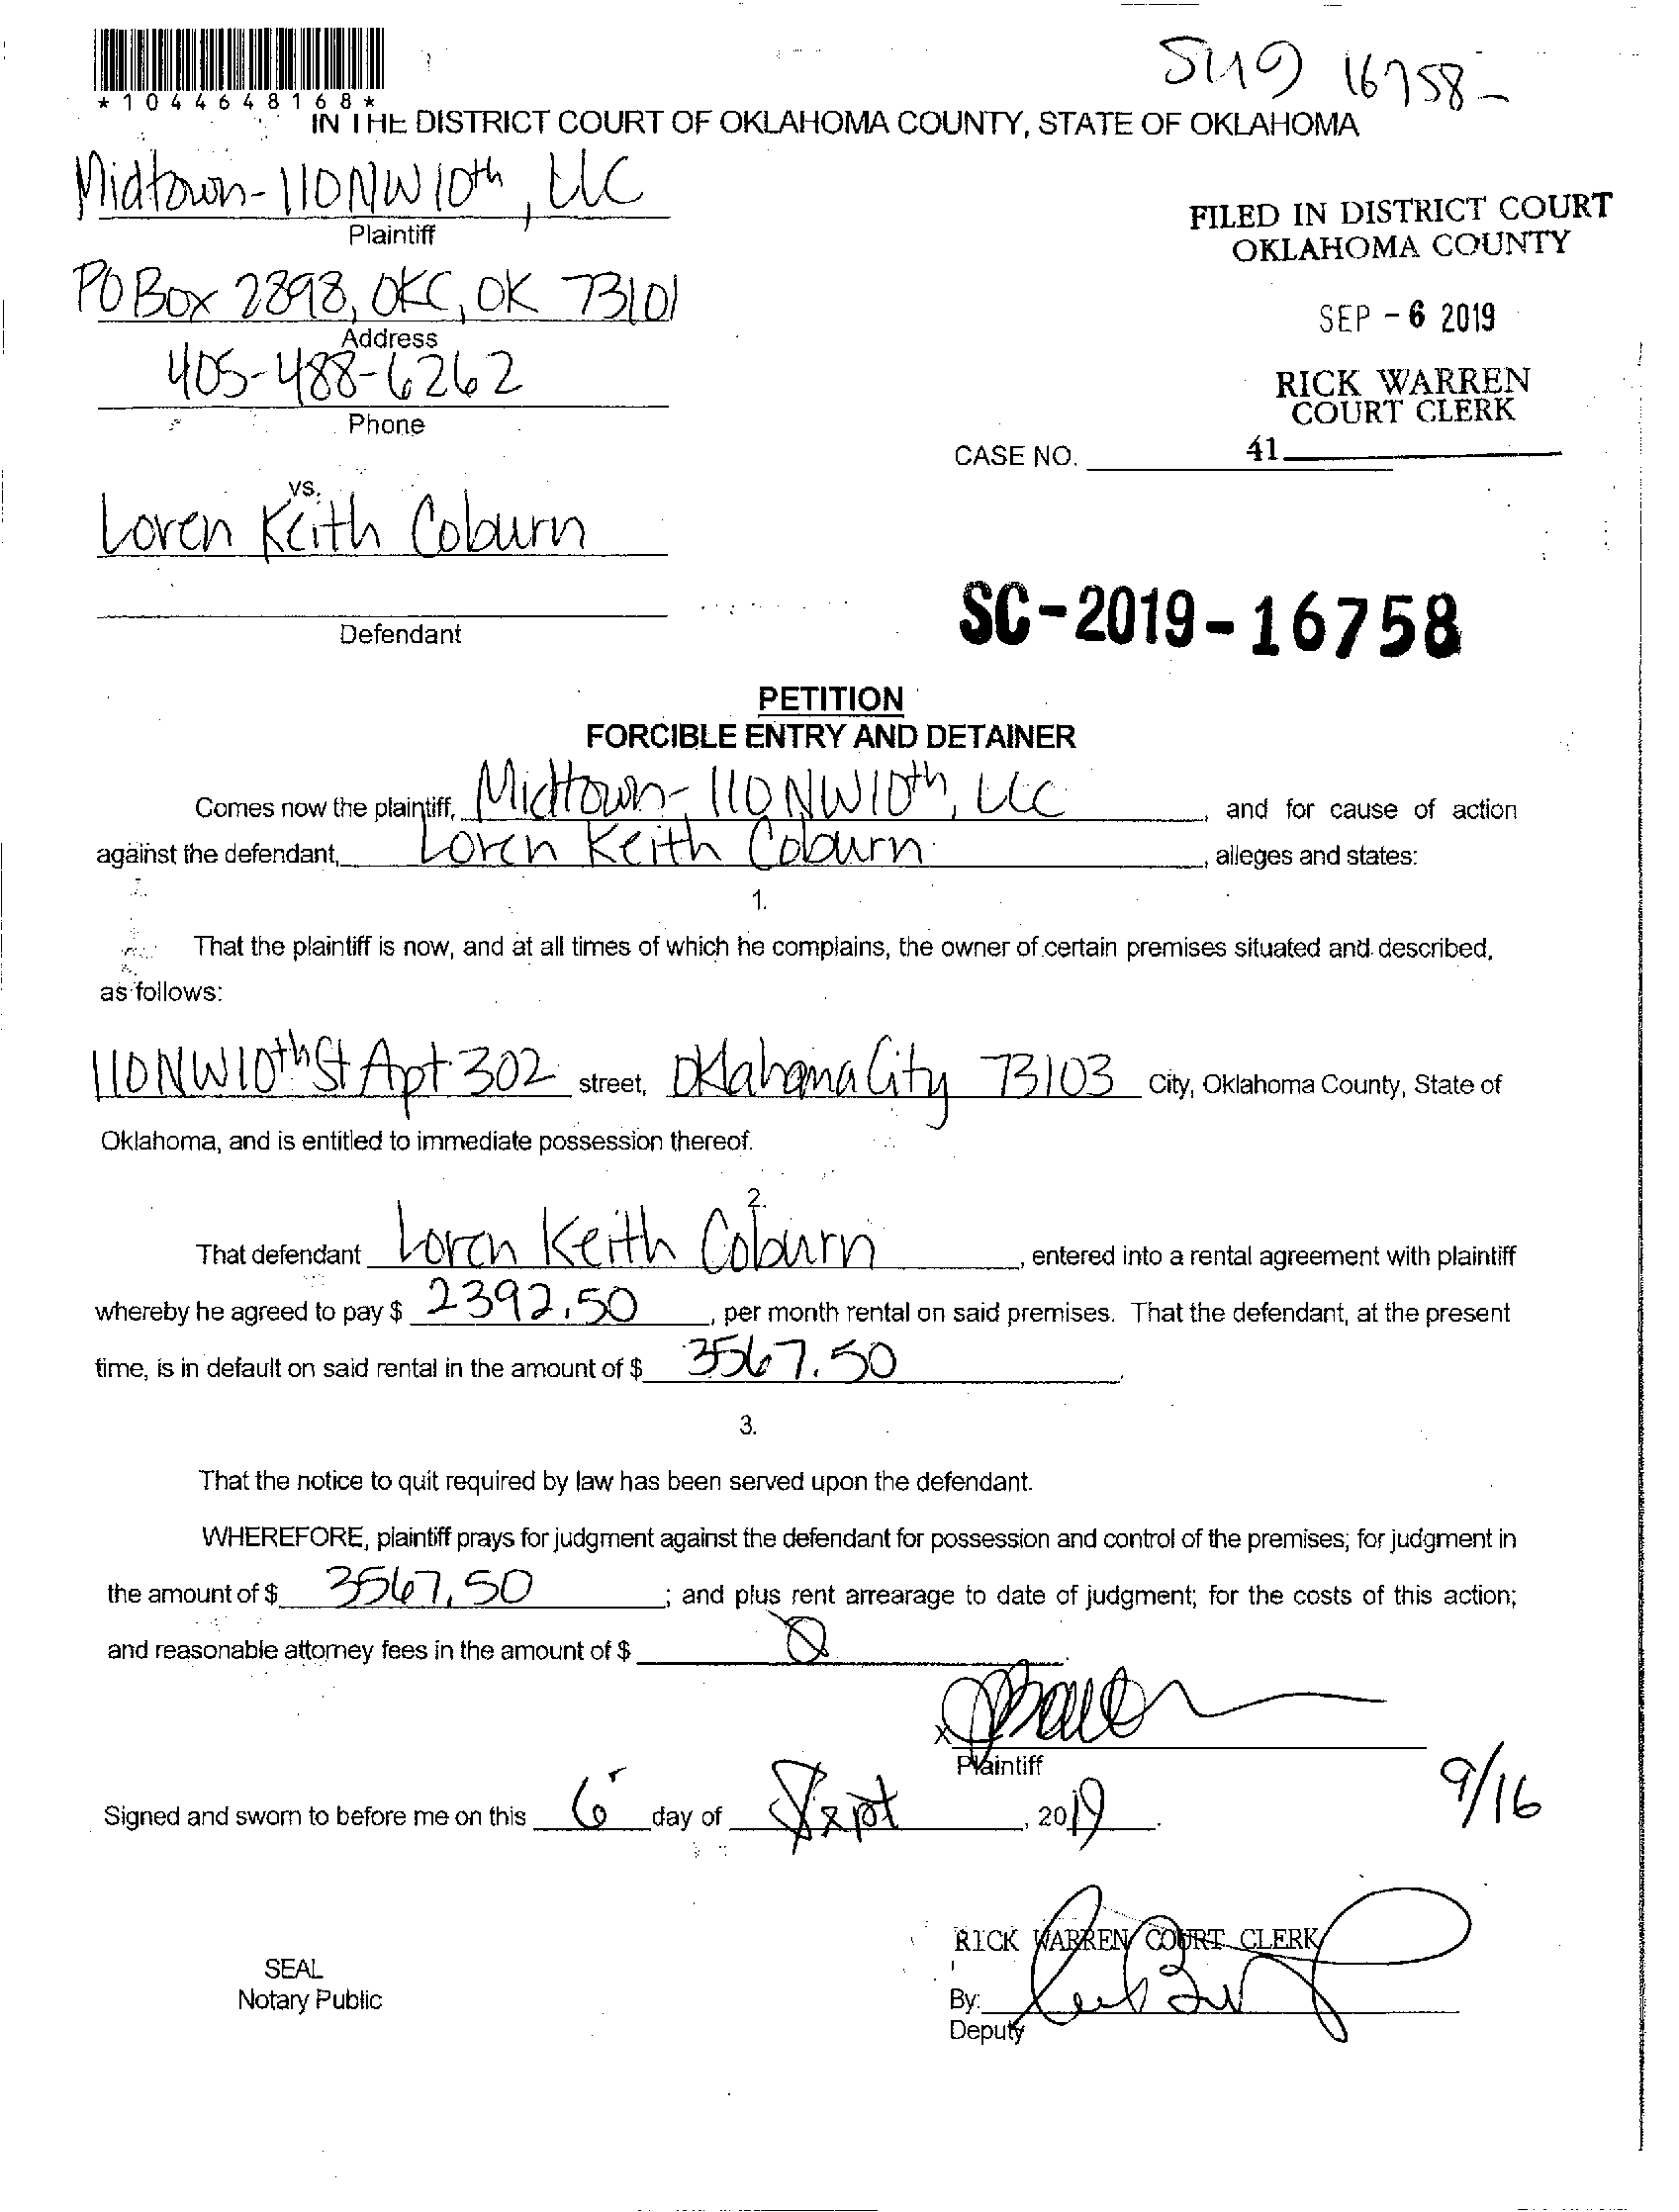 *1044648168*
16758-
IN THE DISTRICT COURT OF OKLAHOMA COUNTY, STATE OF OKLAHOMA
Midtown-110NW10th, LLC
Plaintiff
PO Box 2898, OKC, OK 73101
Address
405-488-6262
Phone
FILED IN DISTRICT COURT
OKLAHOMA COUNTY
SEP - 6 2019
RICK WARREN
COURT CLERK
41
CASE NO.
vs.
Loren Keith Coburn
Defendant
SC-2019-16758
PETITION
FORCIBLE ENTRY AND DETAINER
Comes now the plaintiff, Midtown-110NW10th, LLC, and for cause of action
against the defendant, Loren Keith Coburn, alleges and states:
1.
That the plaintiff is now, and at all times of which he complains, the owner of certain premises situated and described,
as follows:
110NW10th St Apt 302 street, Oklahoma City 73103 City, Oklahoma County, State of
Oklahoma, and is entitled to immediate possession thereof.
2.
That defendant Loren Keith Coburn, entered into a rental agreement with plaintiff
whereby he agreed to pay $ 2392.50, per month rental on said premises. That the defendant, at the present
time, is in default on said rental in the amount of $ 3567.50.
3.
That the notice to quit required by law has been served upon the defendant.
WHEREFORE, plaintiff prays for judgment against the defendant for possession and control of the premises; for judgment in
the amount of $ 3567.50; and plus rent arrearage to date of judgment; for the costs of this action;
and reasonable attorney fees in the amount of $ 0.
x
Plaintiff
9/16
Signed and sworn to before me on this 6 day of Sept, 2019.
RICK WARREN COURT CLERK
SEAL
Notary Public
By:
Deputy